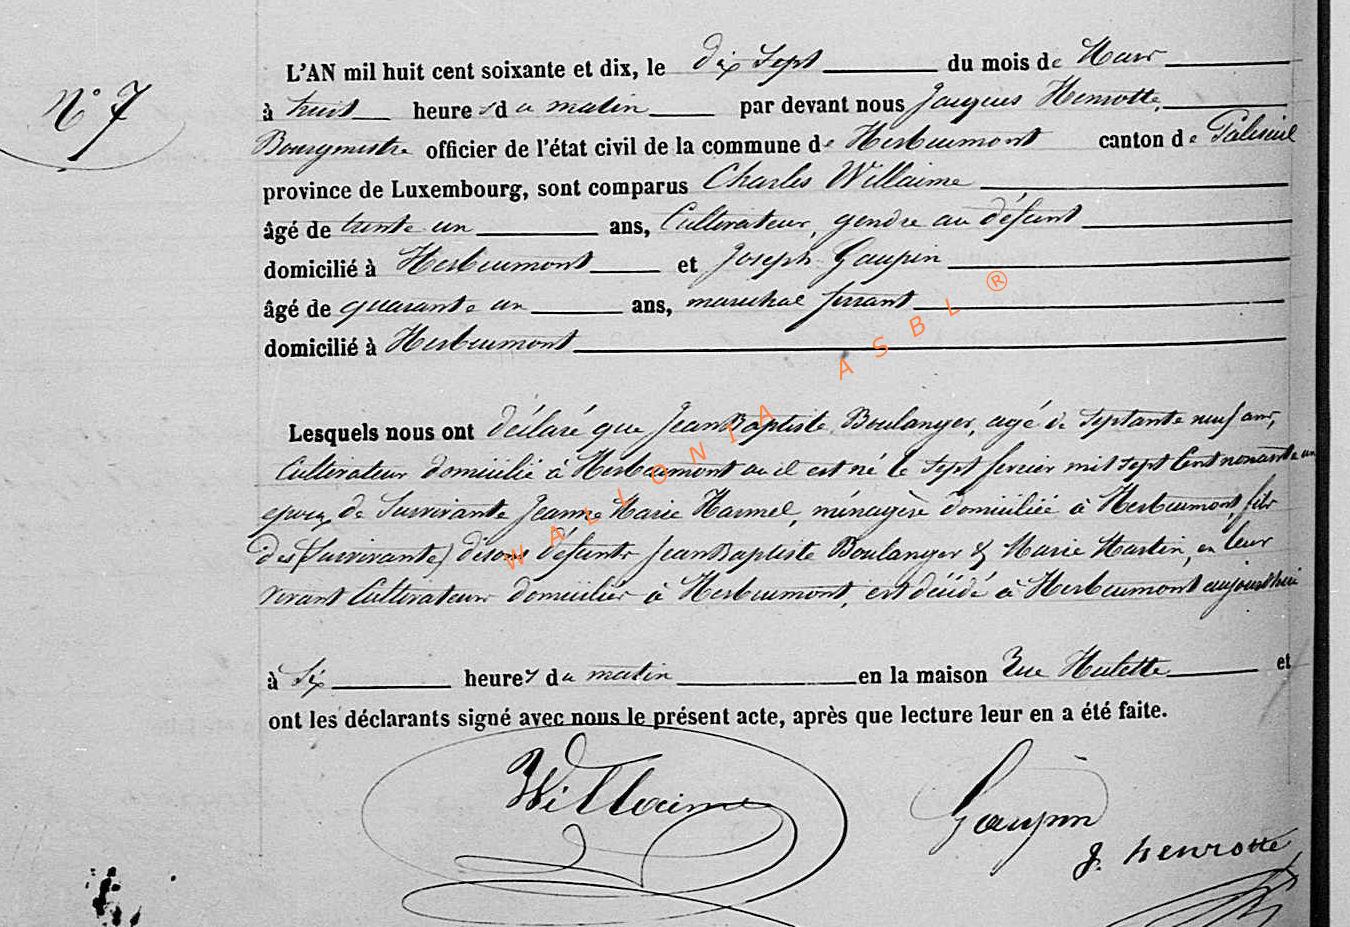 N° 7
L'AN mil huit cent soixante et dix, le dix sept du mois de Mars
à huit heures du matin par devant nous Jacques Henrotte,
Bourgmestre officier de l'état civil de la commune de Herbeumont canton de Paliseul
province de Luxembourg, sont comparus Charles Willaime
âgé de trente un ans, Cultivateur, gendre au défunt
domicilié à Herbeumont et Joseph Gaupin
âgé de quarante un ans, marechal ferrant
domicilié à Herbeumont
Lesquels nous ont déclaré que Jean Baptiste Boulanger, agé de Septante neuf ans,
Cultivateur domicilié à Herbeumont ou il est né le sept fevrier mil sept Cent nonante un
epoux de Survivante Jeanne Marie Hamel, ménagère domiciliée à Herbeumont, fils
des (Survivante) disons défunts Jean Baptiste Boulanger & Marie Martin, en leur
vivant Cultivateurs domiciliés à Herbeumont, est décédé à Herbeumont aujourd'hui
à six heures du matin en la maison Rue Hulette et
ont les déclarants signé avec nous le présent acte, après que lecture leur en a été faite.
Willaime
Gaupin
J. henrotte
WALLONIA ASBL ®